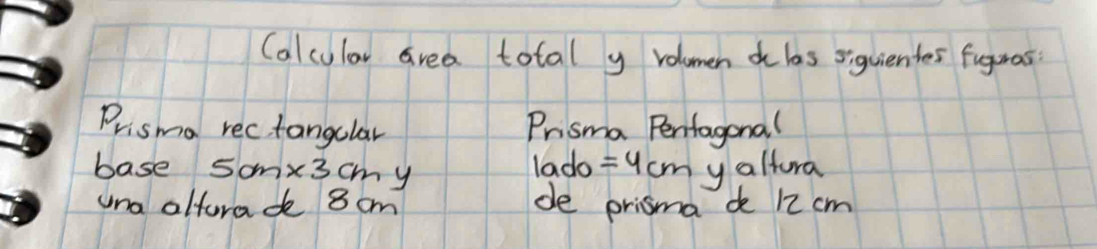 Calcular área total y volumen de las siguientes figuras:
Prisma rectangular
base 5cm x 3 cm y
una altura de 8 cm
Prisma Pentagonal
lado = 4 cm y altura
de prisma de 12 cm